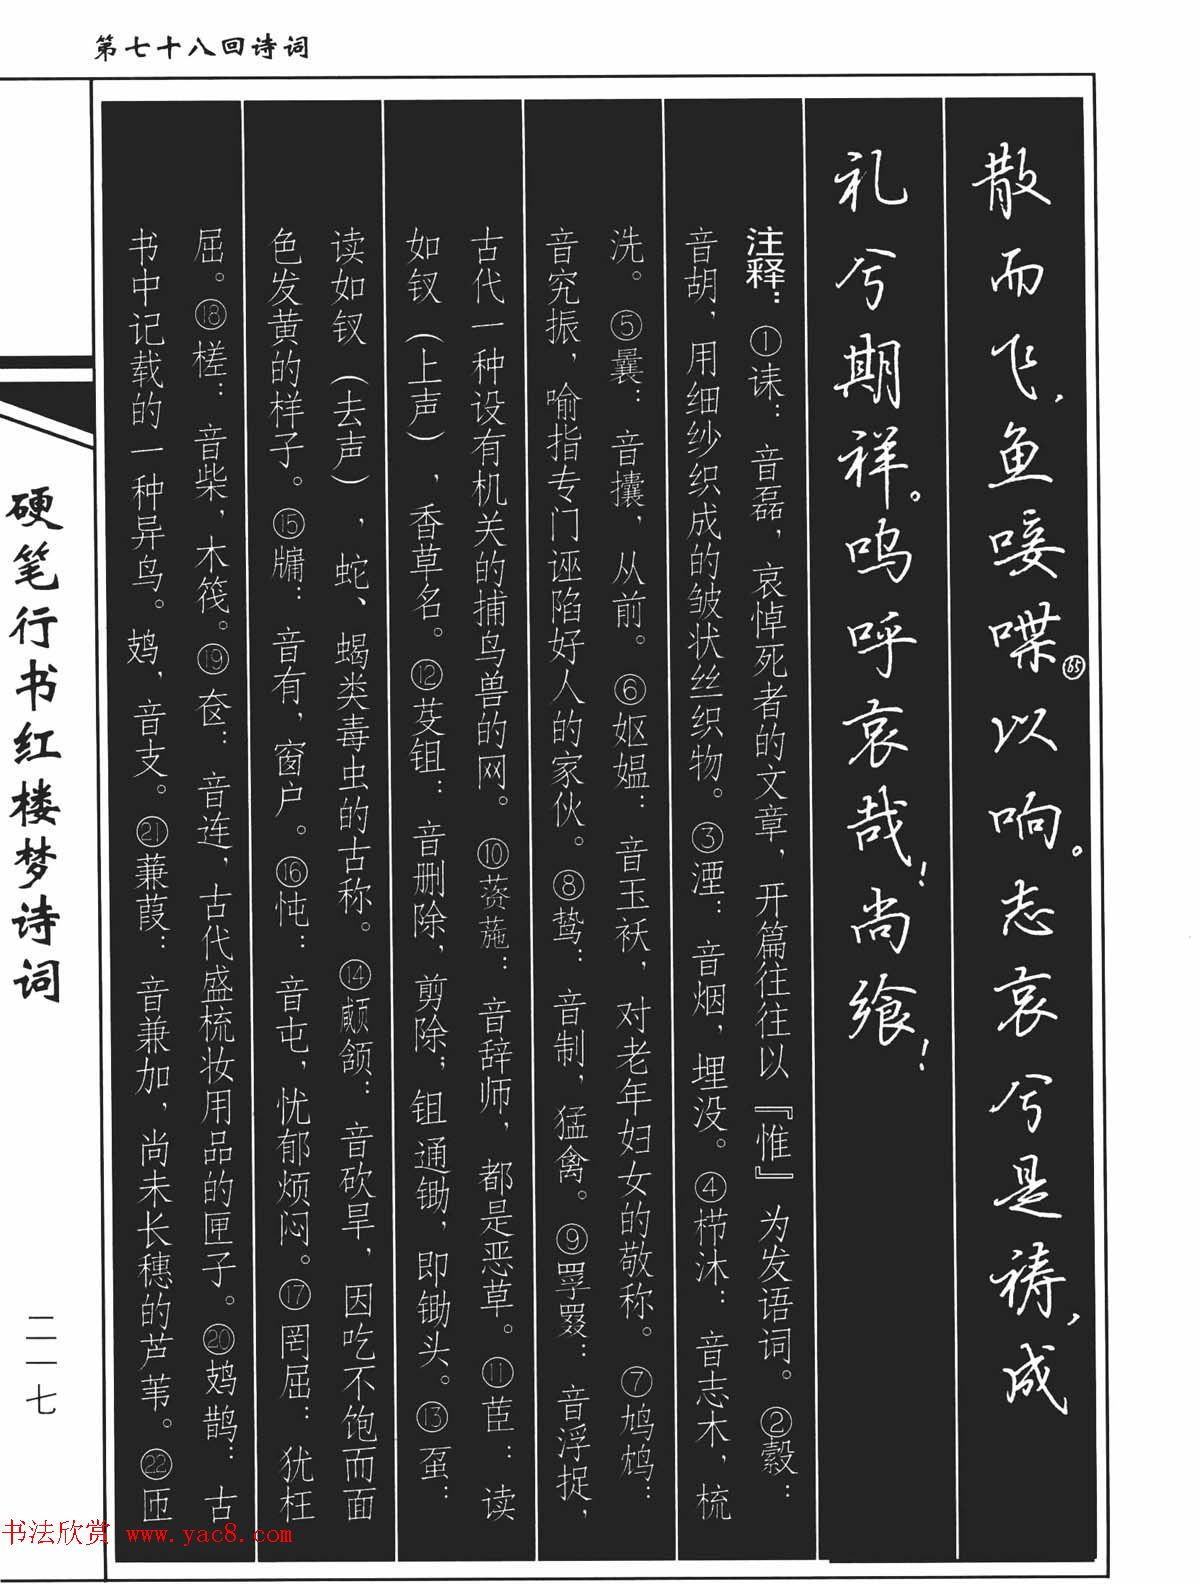 第七十八回诗词
散而飞，鱼唼喋65以响。志哀兮是祷，成
礼兮期祥。呜呼哀哉！尚飨！
注释：①诔：音磊，哀悼死者的文章，开篇往往以『惟』为发语词。②縠：
音胡，用细纱织成的皱状丝织物。③湮：音烟，埋没。④栉沐：音志木，梳
洗。⑤曩：音攮，从前。⑥妪媪：音玉袄，对老年妇女的敬称。⑦鸠鸩：
音究振，喻指专门诬陷好人的家伙。⑧鸷：音制，猛禽。⑨罦罬：音浮捉，
古代一种设有机关的捕鸟兽的网。⑩薋葹：音辞师，都是恶草。⑪茝：读
如钗（上声），香草名。⑫芟鉏：音删除，剪除；鉏通锄，即锄头。⑬虿：
读如钗（去声），蛇、蝎类毒虫的古称。⑭顑颔：音砍旱，因吃不饱而面
色发黄的样子。⑮牗：音有，窗户。⑯忳：音屯，忧郁烦闷。⑰罔屈：犹枉
屈。⑱槎：音柴，木筏。⑲奁：音连，古代盛梳妆用品的匣子。⑳鸡鹊：古
书中记载的一种异鸟。鸡，音支。㉑蒹葭：音兼加，尚未长穗的芦苇。㉒匝
硬笔行书红楼梦诗词
二一七
书法欣赏 www.yac8.com